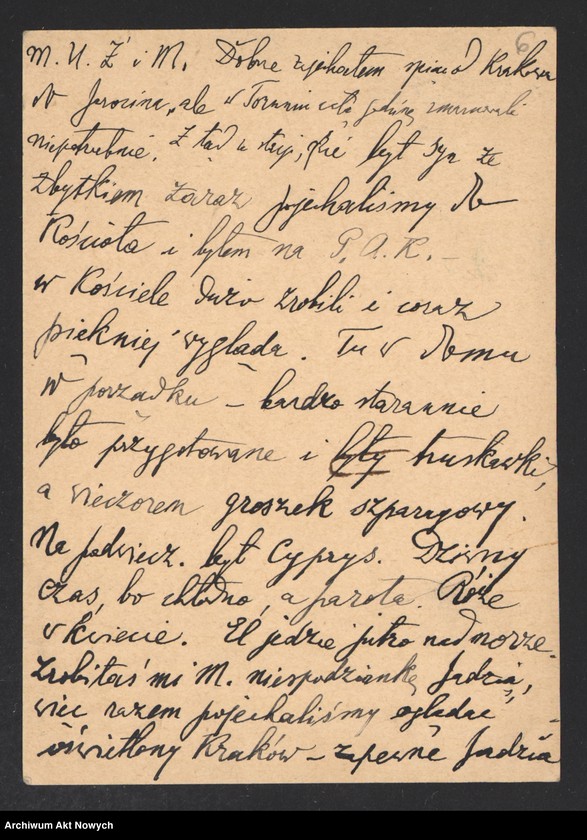 6
M. U. Ż i M. Dobrze zajechałem spiąc od Krakowa
do Jarocina, ale w Toruniu całą godzinę zmarnowali
niepotrzebnie. Z tąd w stacji, był syn ze
Zbytkiem zaraz pojechaliśmy do
Kościoła i byłem na P. A. K. –
w Kościele dużo zrobili i coraz
piękniej wygląda. Tu w domu
w porządku – bardzo starannie
było przygotowane i były truskawki,
a wieczorem groszek szparagowy.
Na podwiecz. był Cyprys. Dziwny
czas, bo chłodno, a parota. Róże
w kwiecie. El jedzie jutro nad morze.
Zrobiłaś mi M. niespodziankę Jadzią,
więc razem pojechaliśmy oglądać
oświetlony Kraków – zapewne Jadzia
Archiwum Akt Nowych